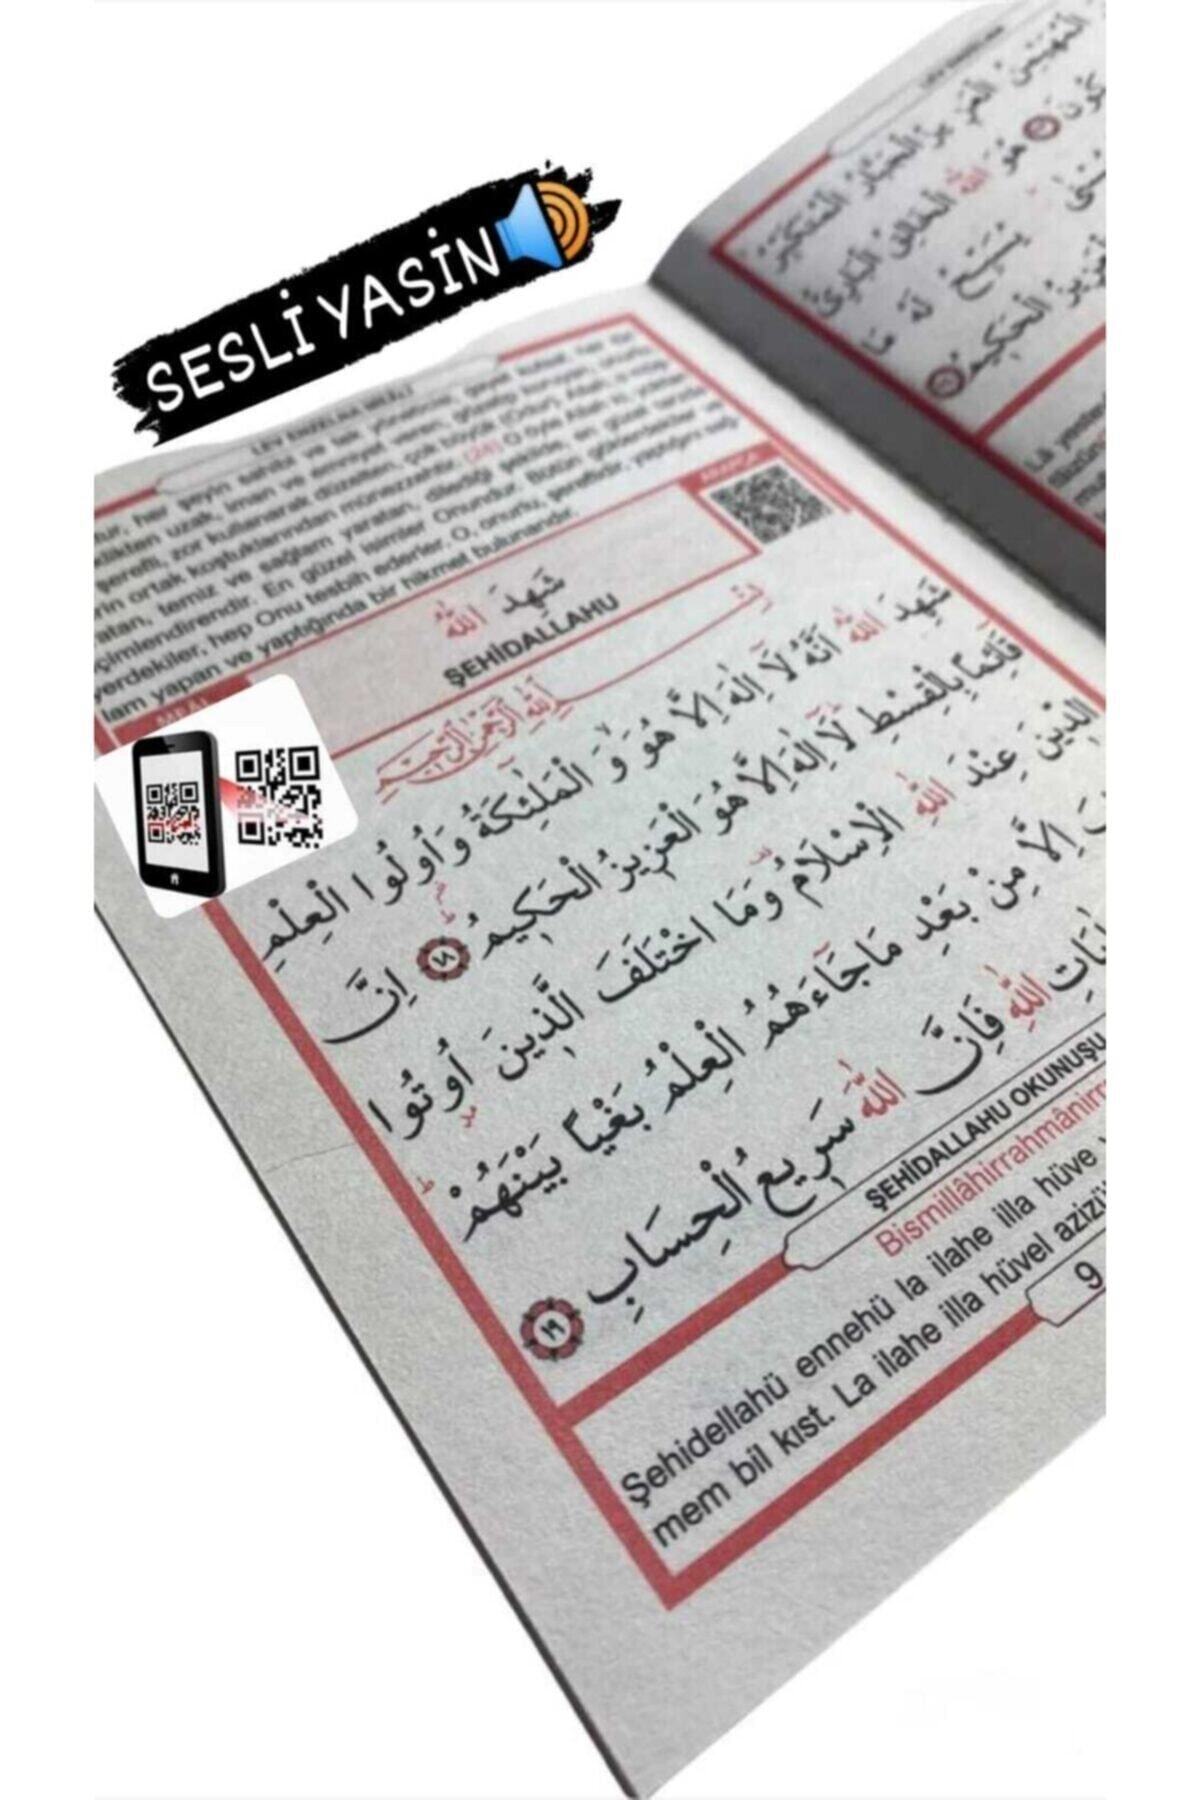 SESLİ YASİN
LEV ENZELNA MEALİ
tur, her şeyin sahibi ve tek yöneticisi, gayet
liklten uzak, iman ve emniyet veren, gözetip koruyan, onurlu,
şerefli, zor kullanarak düzelten, çok büyük (Odur). Allah, o müş-
rin ortak koştuklarından münezzehtir. (24) O öyle Allah ki, yaratan,
atan, temiz ve sağlam yaratan, dilediği şekilde, en güzel tarzda
çimlendirendir. En güzel isimler Onundur. Bütün göklerdekiler ve
yerdekiler, hep Onu tesbih ederler. O, onurlu, şereflidir, yaptığını sağ-
lam yapan ve yaptığında bir hikmet bulunandır.
MEALİ
ARAPÇA
شَهِدَ اللّٰهُ
ŞEHİDALLAHU
بِسْــــــمِ اللّٰهِ الرَّحْمٰنِ الرَّحِيمِ
شَهِدَ اللّٰهُ اَنَّهُ لَٓا اِلٰهَ اِلَّا هُوَۙ وَ الْمَلٰٓئِكَةُ وَ اُولُوا الْعِلْمِ
قَٓائِمًا بِالْقِسْطِۜ لَٓا اِلٰهَ اِلَّا هُوَ الْعَزِيزُ الْحَكِيمُ ﴿١٨﴾ اِنَّ
الدِّينَ عِنْدَ اللّٰهِ الْاِسْلَامُ وَمَا اخْتَلَفَ الَّذِينَ اُوتُوا
اِلَّا مِنْ بَعْدِ مَا جَٓاءَهُمُ الْعِلْمُ بَغْيًا بَيْنَهُمْ
اللّٰهِ فَاِنَّ اللّٰهَ سَرِيعُ الْحِسَابِ ﴿١٩﴾
ŞEHİDALLAHU OKUNUŞU
Bismillâhirrahmânirr
Şehidellahü ennehü la ilahe illa hüve v
mem bil kıst. La ilahe illa hüvel azizü
9
الْمُهَيْمِنُ الْعَزِيزُ الْجَبَّارُ الْمُتَكَبِّرُ
هُوَ اللّٰهُ الْخَالِقُ الْبَارِئُ
يُسَبِّحُ لَهُ
الْعَزِيزُ الْحَكِيمُ